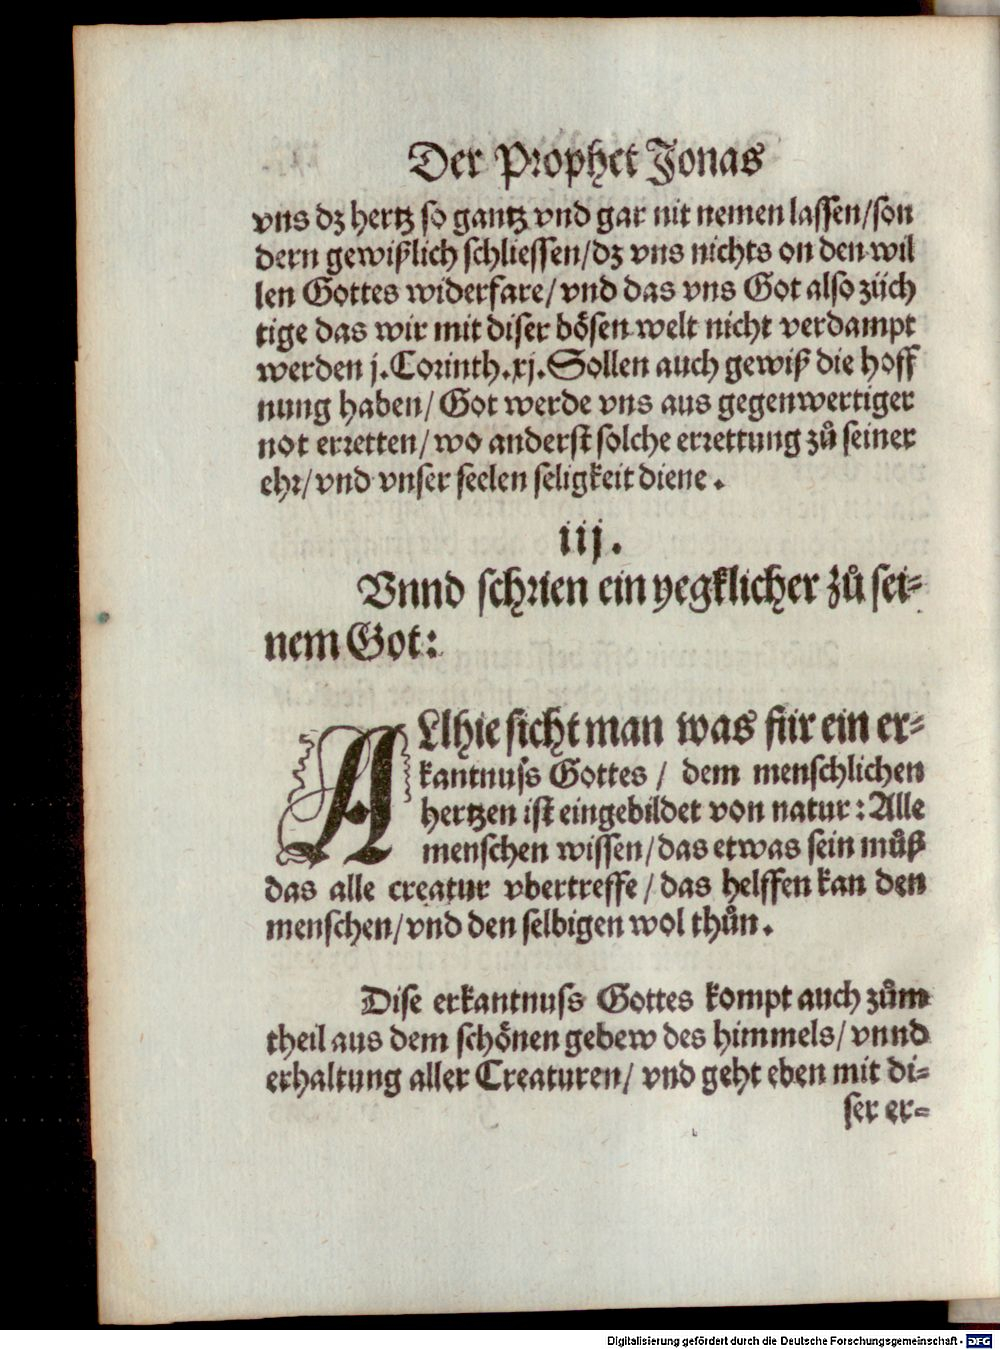 Der Prophet Jonas
vns dz hertz so gantz vnd gar nit nemen lassen/son
dern gewißlich schliessen/dz vns nichts on den wil
len Gottes widerfare/vnd das vns Got also züch
tige das wir mit diser bösen welt nicht verdampt
werden j.Corinth.xj.Sollen auch gewiß die hoff
nung haben/Got werde vns aus gegenwertiger
not erretten/wo anderst solche errettung zů seiner
ehr/vnd vnser seelen seligkeit diene.
iij.
Vnnd schrien ein yegklicher zů sei=
nem Got:
ALhie sicht man was für ein er=
kantnuss Gottes/ dem menschlichen
hertzen ist eingebildet von natur: Alle
menschen wissen/das etwas sein můß
das alle creatur vbertreffe/das helffen kan den
menschen/vnd den selbigen wol thůn.
Dise erkantnuss Gottes kompt auch zům
theil aus dem schönen gebew des himmels/vnnd
erhaltung aller Creaturen/ vnd geht eben mit di=
ser er=
Digitalisierung gefördert durch die Deutsche Forschungsgemeinschaft - DFG